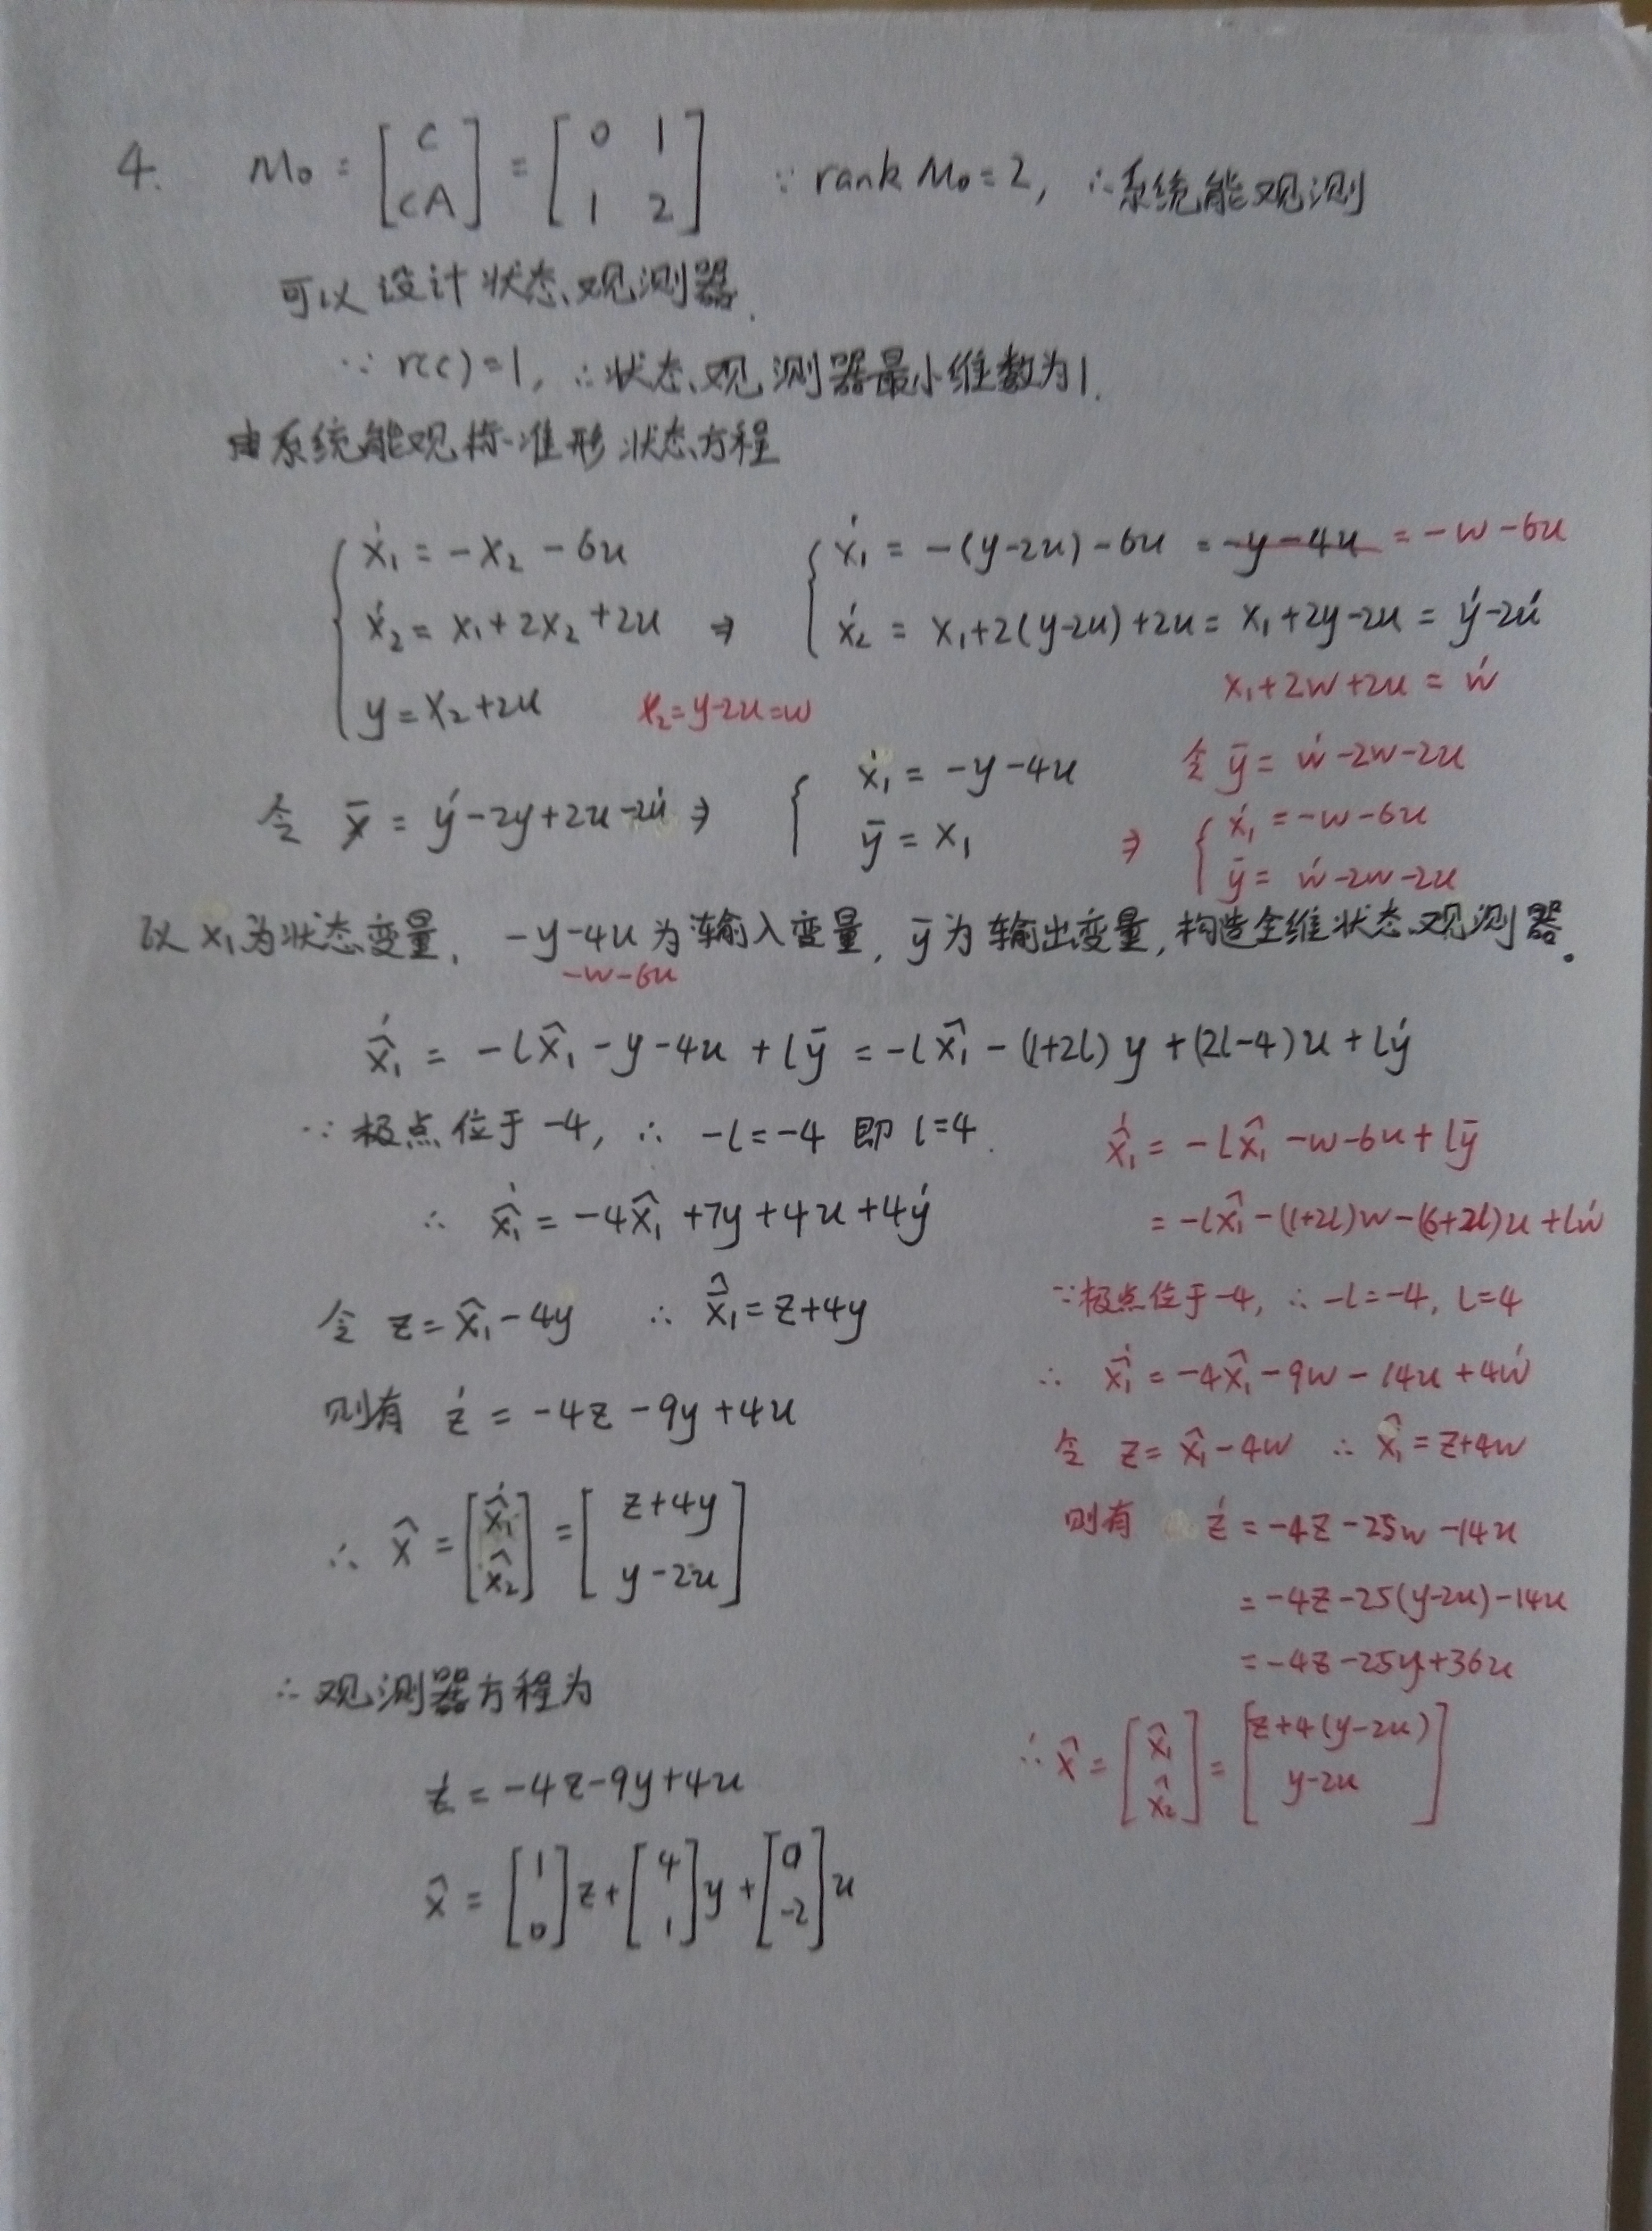 4. M₀ = [C; CA] = [0 1; 1 2] ∵ rank M₀ = 2, ∴系统能观测
可以设计状态观测器.
∵ r(c)=1, ∴状态观测器最小维数为1.
由系统能观标准形状态方程
{ ẋ₁ = -x₂ - 6u
ẋ₂ = x₁+2x₂+2u ⇒
y = x₂+2u
x₂=y-2u=w
{ ẋ₁ = -(y-2u)-6u = -y-4u = -w-6u
ẋ₂ = x₁+2(y-2u)+2u = x₁+2y-2u = ẏ-2u̇
x₁+2w+2u = ẇ
令 x̄ = ẏ-2y+2u-2u̇ ⇒ { ẋ₁ = -y-4u
ȳ = x₁
令 ȳ = ẇ-2w-2u
⇒ { ẋ₁ = -w-6u
ȳ = ẇ-2w-2u
以x₁为状态变量, -y-4u为输入变量, ȳ为输出变量,构造全维状态观测器.
-w-6u
x̂̇₁ = -lx̂₁-y-4u+lȳ = -lx̂₁-(1+2l)y+(2l-4)u+lẏ
∵ 极点位于-4, ∴ -l=-4 即 l=4.
∴ x̂̇₁ = -4x̂₁+7y+4u+4ẏ
令 z=x̂₁-4y ∴ x̂₁=z+4y
则有 ż = -4z-9y+4u
∴ x̂ = [x̂₁; x̂₂] = [z+4y; y-2u]
∴观测器方程为
ż = -4z-9y+4u
x̂ = [1; 0]z+[4; 1]y+[0; -2]u
x̂̇₁ = -lx̂₁-w-6u+lȳ
= -lx̂₁-(1+2l)w-(6+2l)u+lẇ
∵极点位于-4, ∴ -l=-4, l=4
∴ x̂̇₁ = -4x̂₁-9w-14u+4ẇ
令 z=x̂₁-4w ∴ x̂₁=z+4w
则有 ż = -4z-25w-14u
= -4z-25(y-2u)-14u
= -4z-25y+36u
∴ x̂ = [x̂₁; x̂₂] = [z+4(y-2u); y-2u]